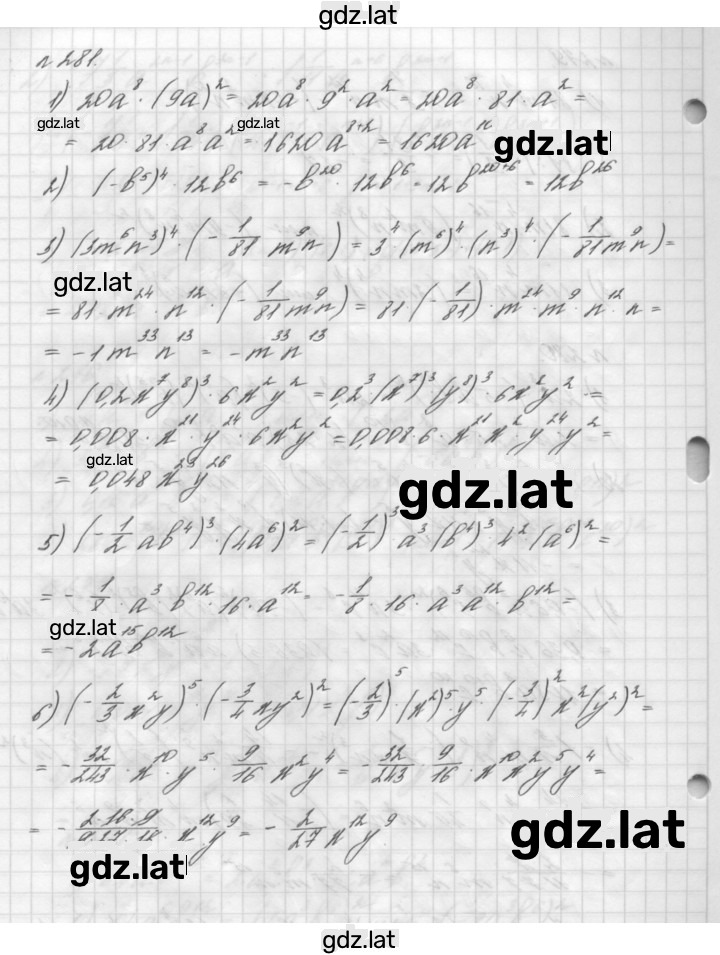 gdz.lat
n 281.
1) 20a⁸ · (9a)² = 20a⁸ · 9² · a² = 20a⁸ · 81 · a² =
gdz.lat gdz.lat
= 20 · 81 · a⁸a² = 1620a⁸⁺² = 1620a¹⁰
gdz.lat
2) (-b⁵)⁴ · 12b⁶ = -b²⁰ · 12b⁶ = 12b²⁰⁺⁶ = 12b²⁶
3) (3m⁶n³)⁴ · (-1/81 m⁹n) = 3⁴ · (m⁶)⁴ · (n³)⁴ · (-1/81 m⁹n) =
gdz.lat
= 81 · m²⁴ · n¹² · (-1/81 m⁹n) = 81 · (-1/81) · m²⁴ · m⁹ · n¹² · n =
= -1m³³n¹³ = -m³³n¹³
4) (0,2x⁷y⁸)³ · 6x²y² = 0,2³ · (x⁷)³ · (y⁸)³ · 6x²y² =
= 0,008 · x²¹ · y²⁴ · 6x²y² = 0,008 · 6 · x²¹ · x² · y²⁴ · y² =
gdz.lat
= 0,048x²³y²⁶
gdz.lat
5) (-1/2 ab⁴)³ · (4a⁶)² = (-1/2)³ a³ · (b⁴)³ · 4² · (a⁶)² =
= -1/8 · a³ · b¹² · 16 · a¹² = -1/8 · 16 · a³a¹² · b¹² =
gdz.lat
= -2a¹⁵b¹²
6) (-2/3 x²y)⁵ · (-3/4 xy²)² = (-2/3)⁵ · (x²)⁵ · y⁵ · (-3/4)² x² (y²)² =
= -32/243 · x¹⁰ · y⁵ · 9/16 x²y⁴ = -32/243 · 9/16 · x¹⁰x²y⁵y⁴ =
gdz.lat
x¹²y⁹ = -2/27 x¹²y⁹
gdz.lat
gdz.lat